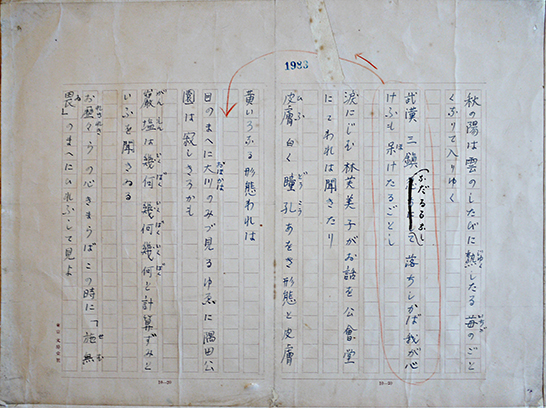 1983
秋の陽は雲のしたびに熟したる苺のごと
くぶりて入りゆく
武漢三鎮 て落ちしかば我が心
けふも呆けたるごとし
涙にじむ林芙美子がお話を公會堂
にてわれは聞きたり
皮膚白く瞳孔あをき形態と皮膚
黄いろなる形態われは
目のまへに大川のみづ見るゆゑに隅田公
園は寂しきろかも
巌塩は幾何幾何と計算ずみと
いふを聞きゐる
お歴々 の心きまらばこの時に「施無
畏」のまへにひれふして見よ
20—20
20—20